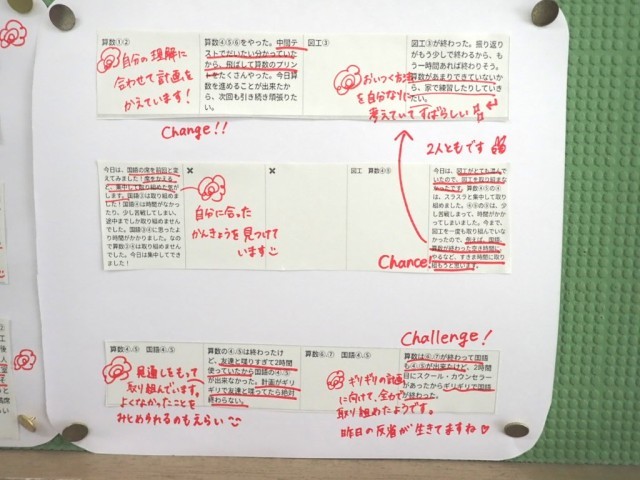 算数①②
自分の理解に
合わせて計画を
かえています！
算数④⑤⑥をやった。中間テ
ストでだいたい分かっていた
から、飛ばして算数のプリン
トをたくさんやった。今日算
数を進めることが出来たか
ら、次回も引き続き頑張りた
い。
Change!!
図工③
おいつく方法
を自分なりに
考えていてすばらしい
図工③が終わった。振り返り
がもう少しで終わるから、も
う一時間あれば終わりそう。
算数があまりできていないか
ら、家で練習したりしていき
たい。
2人ともです
今日は、国語の席を前回と変
えてみました！席をかえる
と、集中して取り組めた気が
します。国語③は取り組めまし
た！国語④は時間がなかっ
たり、少し苦戦してしまい、
途中までしか取り組めません
でした。国語③④に思ったよ
り時間がかかりました。なの
で算数③④は取り組めません
でした。今日は集中してでき
ました！
×
自分に合った
かんきょうを見つけて
います
×
図工 算数④⑤
今日は、図工がとても進んで
いたので、図工を取り組まな
かったです。算数④⑤の④
は、スラスラと集中して取り
組めました。
④⑤の⑤は、少
し苦戦しまって、時間がかか
ってしまいました。今まで、
図工を一度も取り組んでいな
かったので、例えば、国語、
算数が終わった空き時間に
やるなど、すきま時間に取り
組もうと思います。
Chance!
Challenge!
算数④.⑤ 国語④.⑤
見通しをもって
取り組んでいます。
よくなかったことを
みとめられるのもえらい
算数の④.⑤は終わったけ
ど、友達と喋りすぎて2時間
使っていたから国語の④.⑤
が出来なかった。計画がギリ
ギリで友達と喋ってたら絶対
終わらない。
算数⑥.⑦ 国語④.⑤
ギリギリの計画
に向けて、全力で
取り組めたようです。
昨日の反省が生きてますね♡
算数は⑥.⑦が終わって国語
も④.⑤が出来たけど、2時間
目にスクール・カウンセラー
があったからギリギリで国語
が終わった。